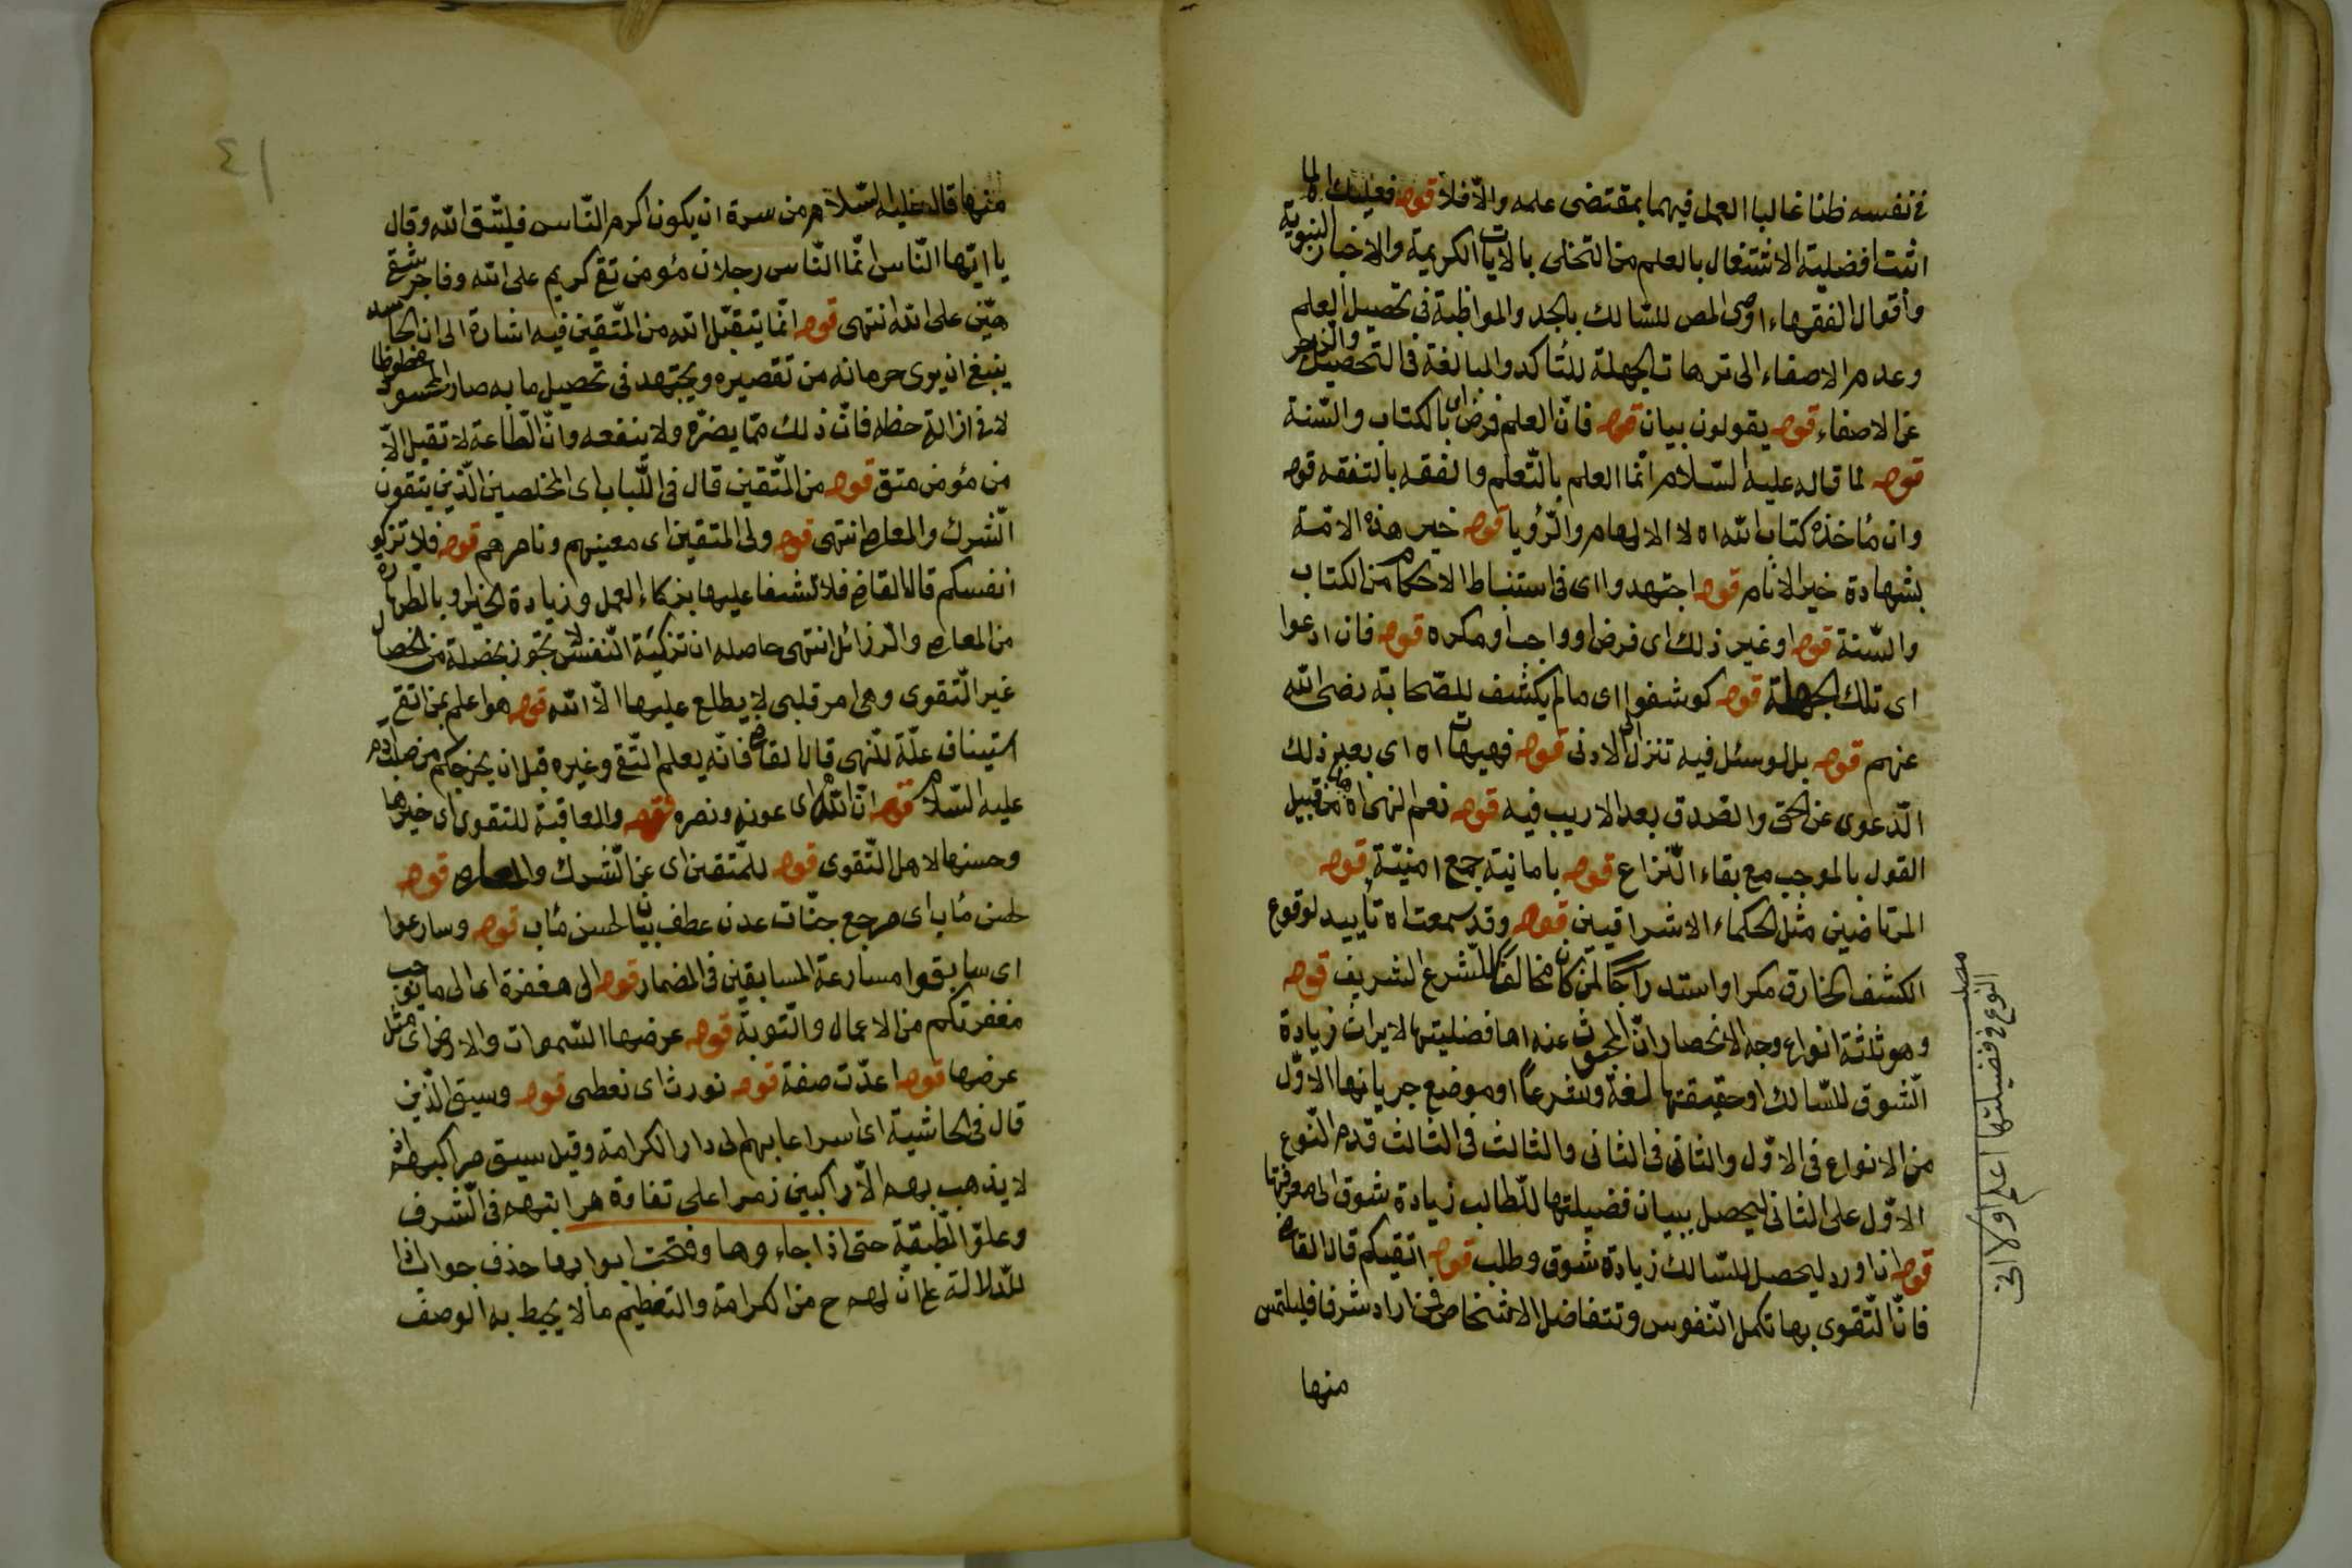 في نفسه ظنا غالبا العمل فيهما بمقتضى علمه والا فلا قوله فعليك اه لما
اثبت افضلية الاشتغال بالعلم من التخلى بالايات الكريمة والاخبار النبوية
واقوال الفقهاء اوصى المص للسالك بالجد والمواظبة في تحصيل العلم
وعدم الاصغاء الى ترهات الجهلة للتأكد والمبالغة في التحصيل والزجر
عن الاصغاء قوله يقولون بيان قوله فان العلم فرض اى بالكتاب والسنة
قوله لما قاله عليه السلام انما العلم بالتعلم والفقه بالتفقه قوله
وان مأخذه كتاب الله اه لا الالهام والرؤيا قوله خير هذه الامة
بشهادة خير الانام قوله اجتهدوا اى في استنباط الاحكام من الكتاب
والسنة قوله او غير ذلك اى فرض او واجب او مكره قوله فان ادعوا
اى تلك الجهلة قوله كوشفوا اى مالم يكشف للصحابة رضى الله
عنهم قوله بل لو سئل فيه تنزل الى الادنى قوله فهيهات اه اى بعيد ذلك
الدعوى عن الحق والصدق بعدا لا ريب فيه قوله نعم انهى اه من قبيل
القول بالموجب مع بقاء النزاع قوله بامانية جمع امنية قوله
المرتاضين مثل الحكماء الاشراقيين قوله وقد سمعت اه تأييد لوقوع
الكشف الخارق مكرا واستدراجا لمن كان مخالفا للشرع الشريف قوله
وهو ثلثة انواع وجه الانحصار ان المبحوث عنه اما فضيلتها لايراث زيادة
الشوق للسالك او حقيقتها لغة وشرعا او موضع جريانها الاول
من الانواع في الاول والثانى في الثانى والثالث في الثالث قدم النوع
الاول على الثانى ليحصل ببيان فضيلتها للطالب زيادة شوق الى معرفتها
قوله انا اورد ليحصل للسالك زيادة شوق وطلب قوله اتقيكم قال القاض
فان التقوى بها تكمل النفوس وتتفاضل الاشخاص فمن اراد شرفا فليلتمس
منها
النوع في فضيلتها اعلم اولا انى
٤١
منها قال عليه السلام من سره ان يكون اكرم الناس فليتق الله وقال
يا ايها الناس انما الناس رجلان مؤمن تقى كريم على الله وفاجر شقى
هين على الله انتهى قوله انما يتقبل الله من المتقين فيه اشارة الى ان الحاسد
ينبغى ان يرى حرمانه من تقصيره ويجتهد في تحصيل ما به صار المحسود محظوظا
لا في ازالة حظه فان ذلك مما يضره ولا ينفعه وان الطاعة لا تقبل الا
من مؤمن متق قوله من المتقين قال في اللباب اى المخلصين الذين يتقون
الشرك والمعاصى انتهى قوله ولى المتقين اى معينهم وناصرهم قوله فلا تزكو
انفسكم قال القاض فلا تثنوا عليها بزكاء العمل وزيادة الخير او بالطهارة
من المعاصى والرزائل انتهى حاصله ان تزكية النفس لا تجوز بخصلة من الخصال
غير التقوى وهى امر قلبى لا يطلع عليها الا الله قوله هو اعلم بمن اتقى
استيناف علة للنهى قال القاض فانه يعلم التقى وغيره قبل ان يخرجكم من صلب ادم
عليه السلام قوله ان الله اى عونه ونصره قوله والعاقبة للتقوى اى خيرها
وحسنها لاهل التقوى قوله للمتقين اى عن الشرك والمعاصى قوله
لحسن مأب اى مرجع جنات عدن عطف بيان لحسن مأب قوله وسارعوا
اى سابقوا مسارعة المسابقين في المضمار قوله الى مغفرة اى الى ما يوجب
مغفرتكم من الاعمال والتوبة قوله عرضها السموات والارض اى مثل
عرضها قوله اعدت صفة قوله نورث اى نعطى قوله وسيق الذين
قال في الحاشية اى اسراعا بهم الى دار الكرامة وقيل سيق مراكبهم اذ
لا يذهب بهم الا راكبين زمرا على تفاوة مراتبهم في الشرف
وعلو الطبقة حتى اذا جاءوها وفتحت ابوابها حذف جواب اذا
للدلالة على ان لهم ح من الكرامة والتعظيم مالا يحيط به الوصف